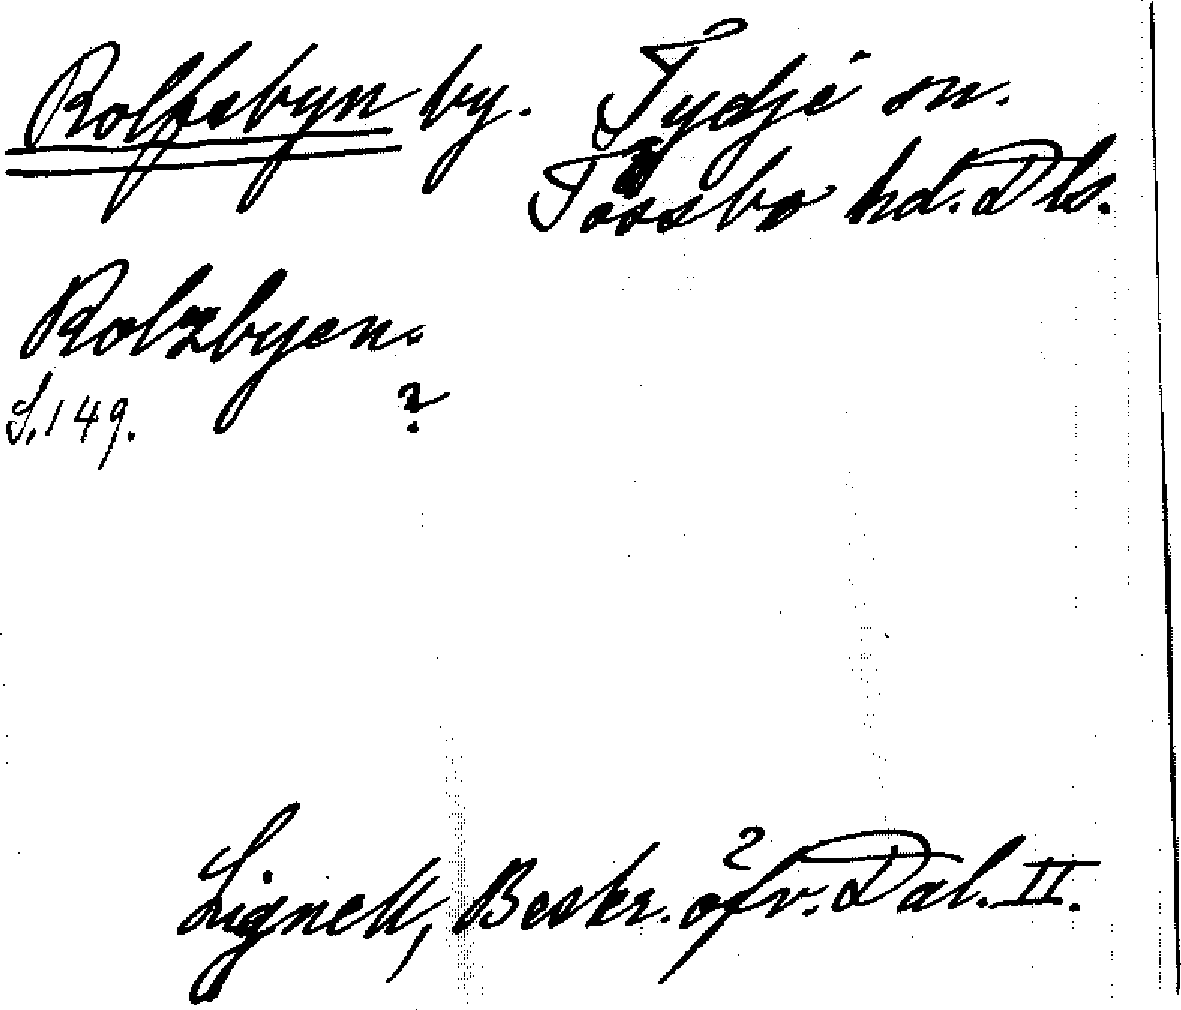 Rolfsbyn by. Tydje sn.
Tössbo hd. Dls.
Rolzbyen.
S. 149. ?
Lignell, Beskr. öfv. Dal. II.